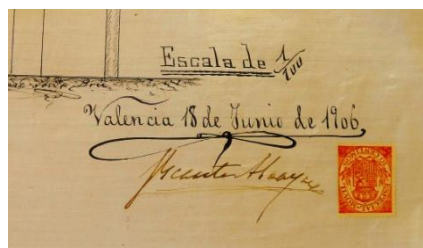 Escala de 1/100
Valencia 18 de Junio de 1906,
Vicente